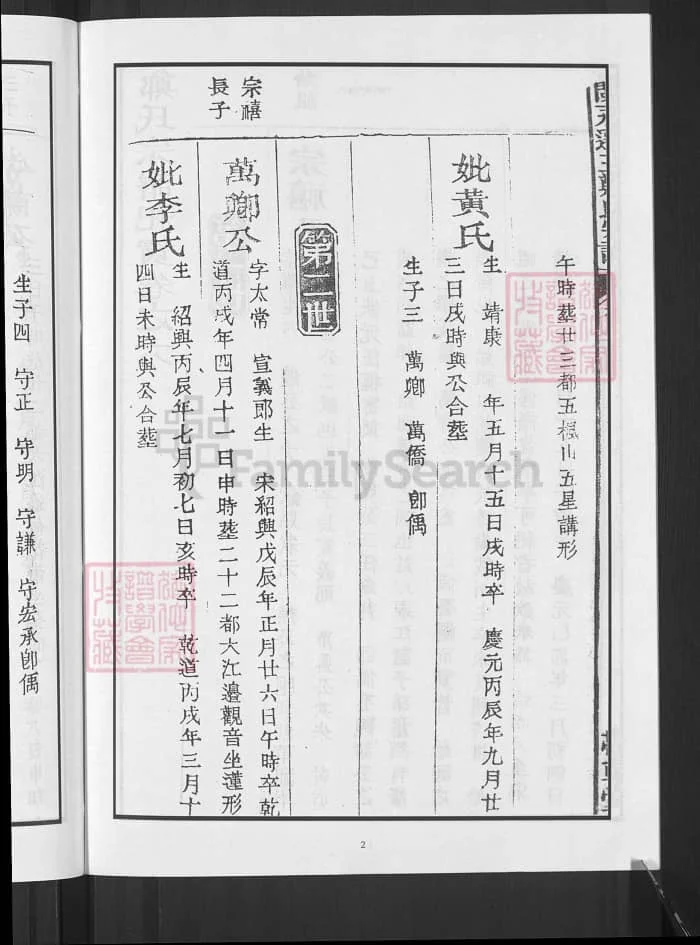 午時塟廿三都五楓山五星講形
妣黃氏
生　靖康　年五月十五日戌時卒　慶元丙辰年九月廿
三日戌時與公合塟
生子三　萬卿　萬僑　卽偊
第二世
宗禧
長子
萬卿公
字太常　宣義郎生　宋紹興戊辰年正月廿六日午時卒乾
道丙戌年四月十一日申時塟二十二都大江邊觀音坐蓮形
妣李氏
生　紹興丙辰年七月初七日亥時卒　乾道丙戌年三月十
四日未時與公合塟
2
生子四　守正　守明　守謙　守宏承卽偊
FamilySearch